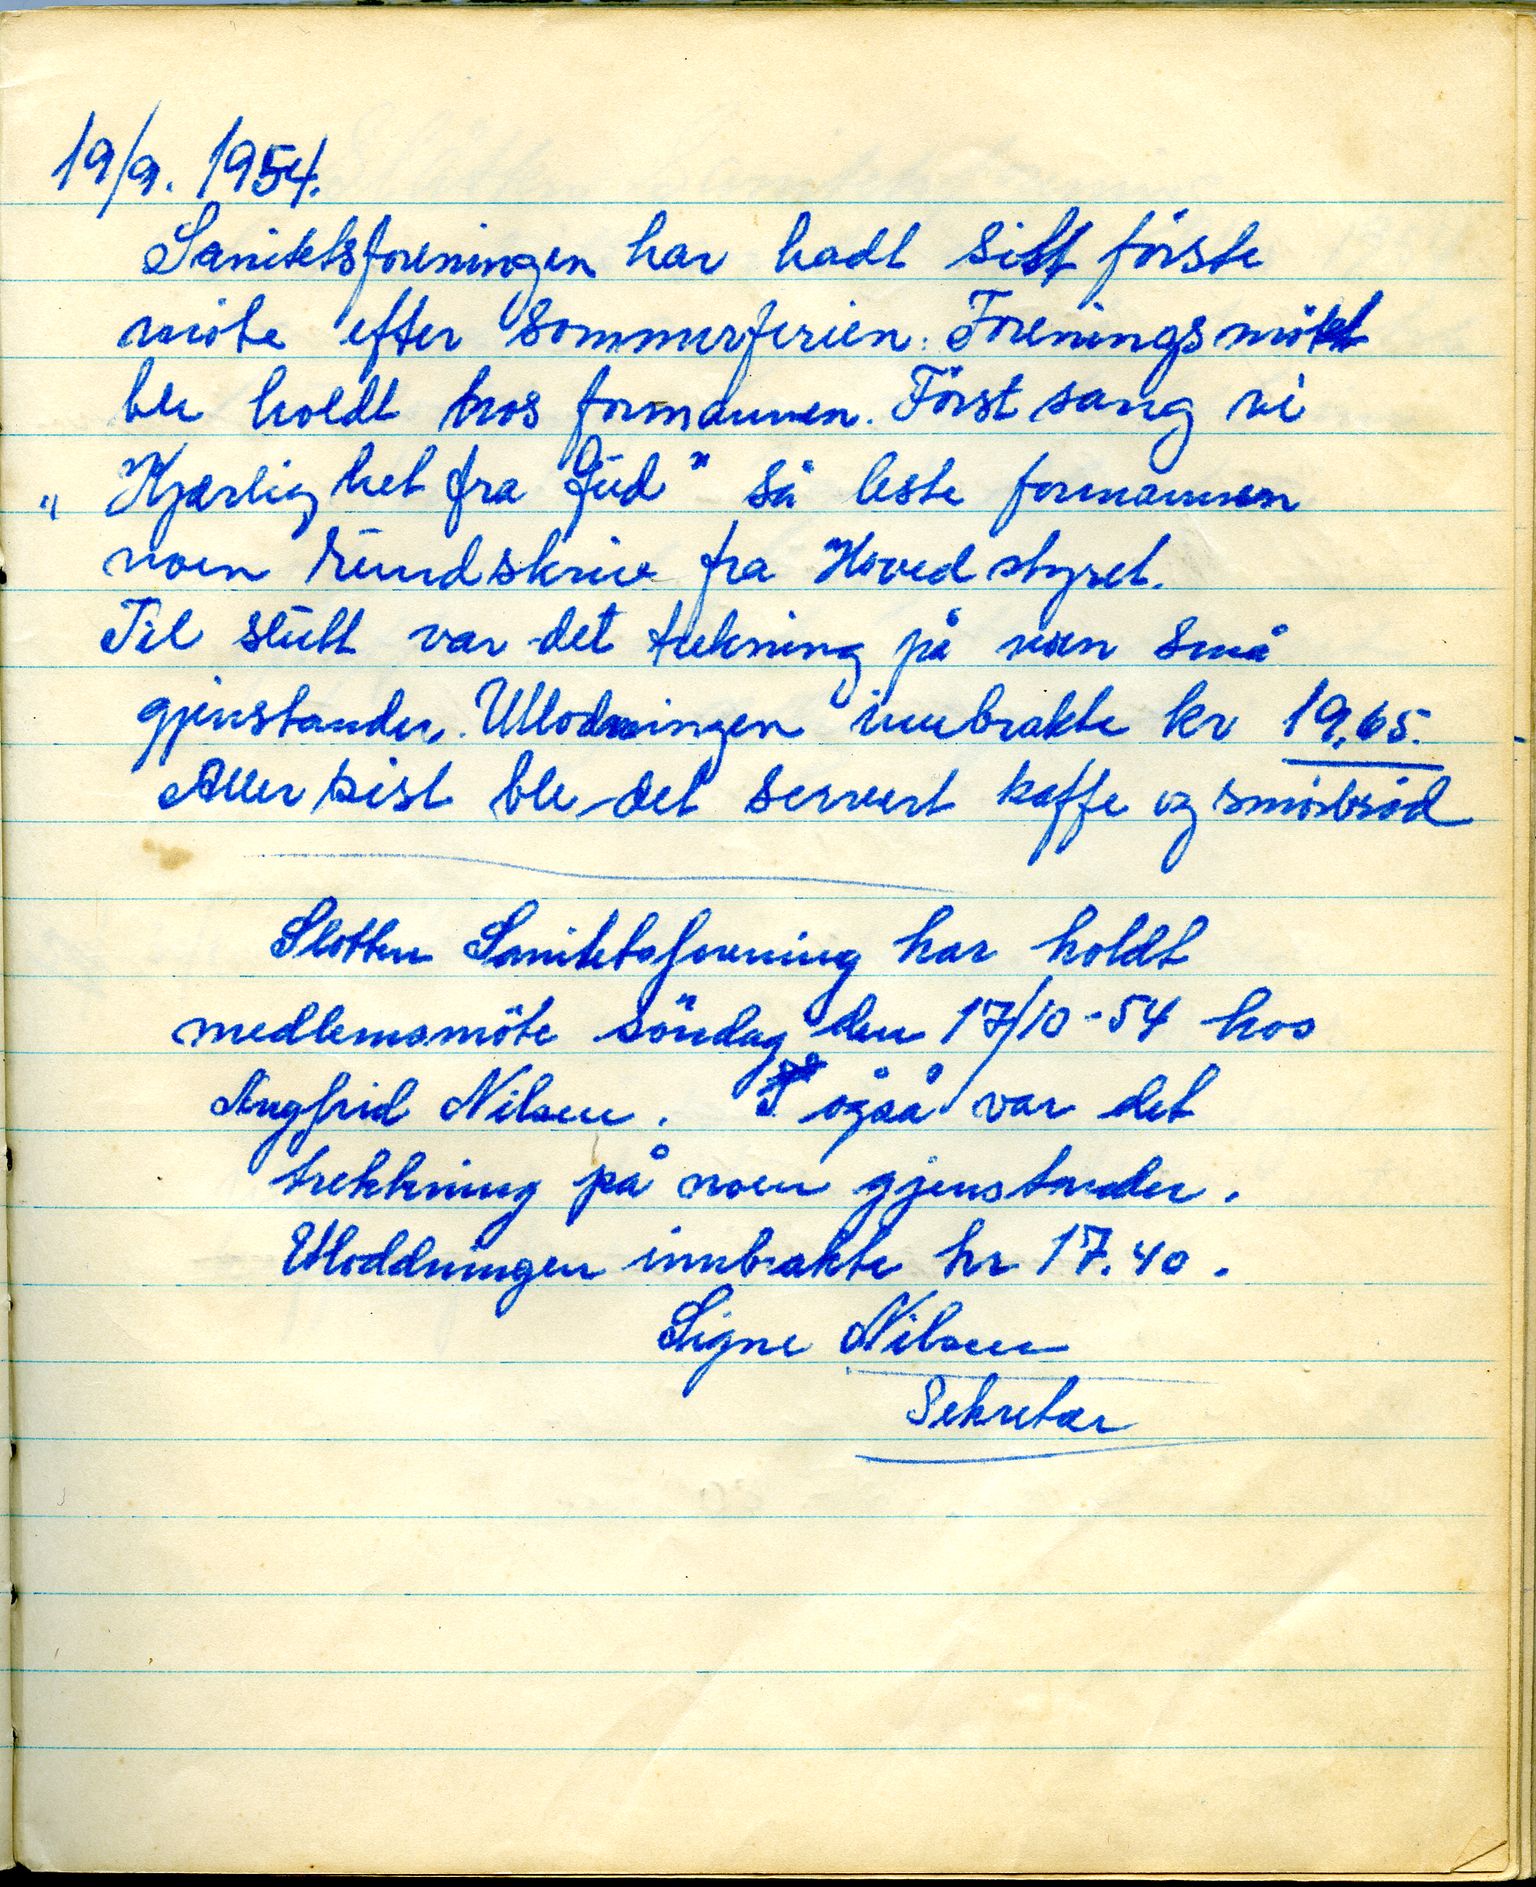 19/9. 1954.
Sanitetsforeningen har hadt sitt förste
möte efter sommerferien. Foreningsmötet
ble holdt hos formannen. Först sang vi
„Kjærlighet fra Gud" så leste formannen
noen rundskriv fra Hovedstyret.
Til slutt var det trekning på noen små
gjenstander. Utlodningen innbrakte kr 19,65.
Aller sist ble det servert kaffe og smörbröd
Slotten Sanitetsforening har holdt
medlemsmöte söndag den 17/10-54 hos
Angfrid Nilsen. også var det
trekkning på noen gjenstander.
Utloddningen innbrakte kr 17.40.
Signe Nilsen
Sekretær